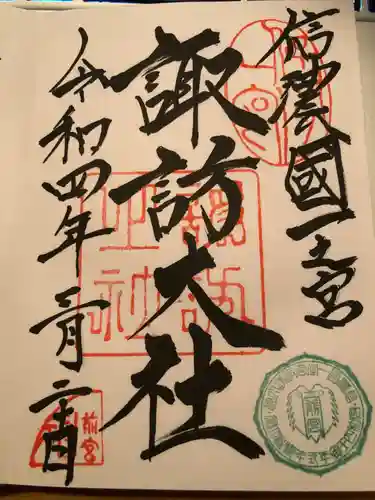 信濃國一之宮
諏訪大社
令和四年三月二十日
前宮